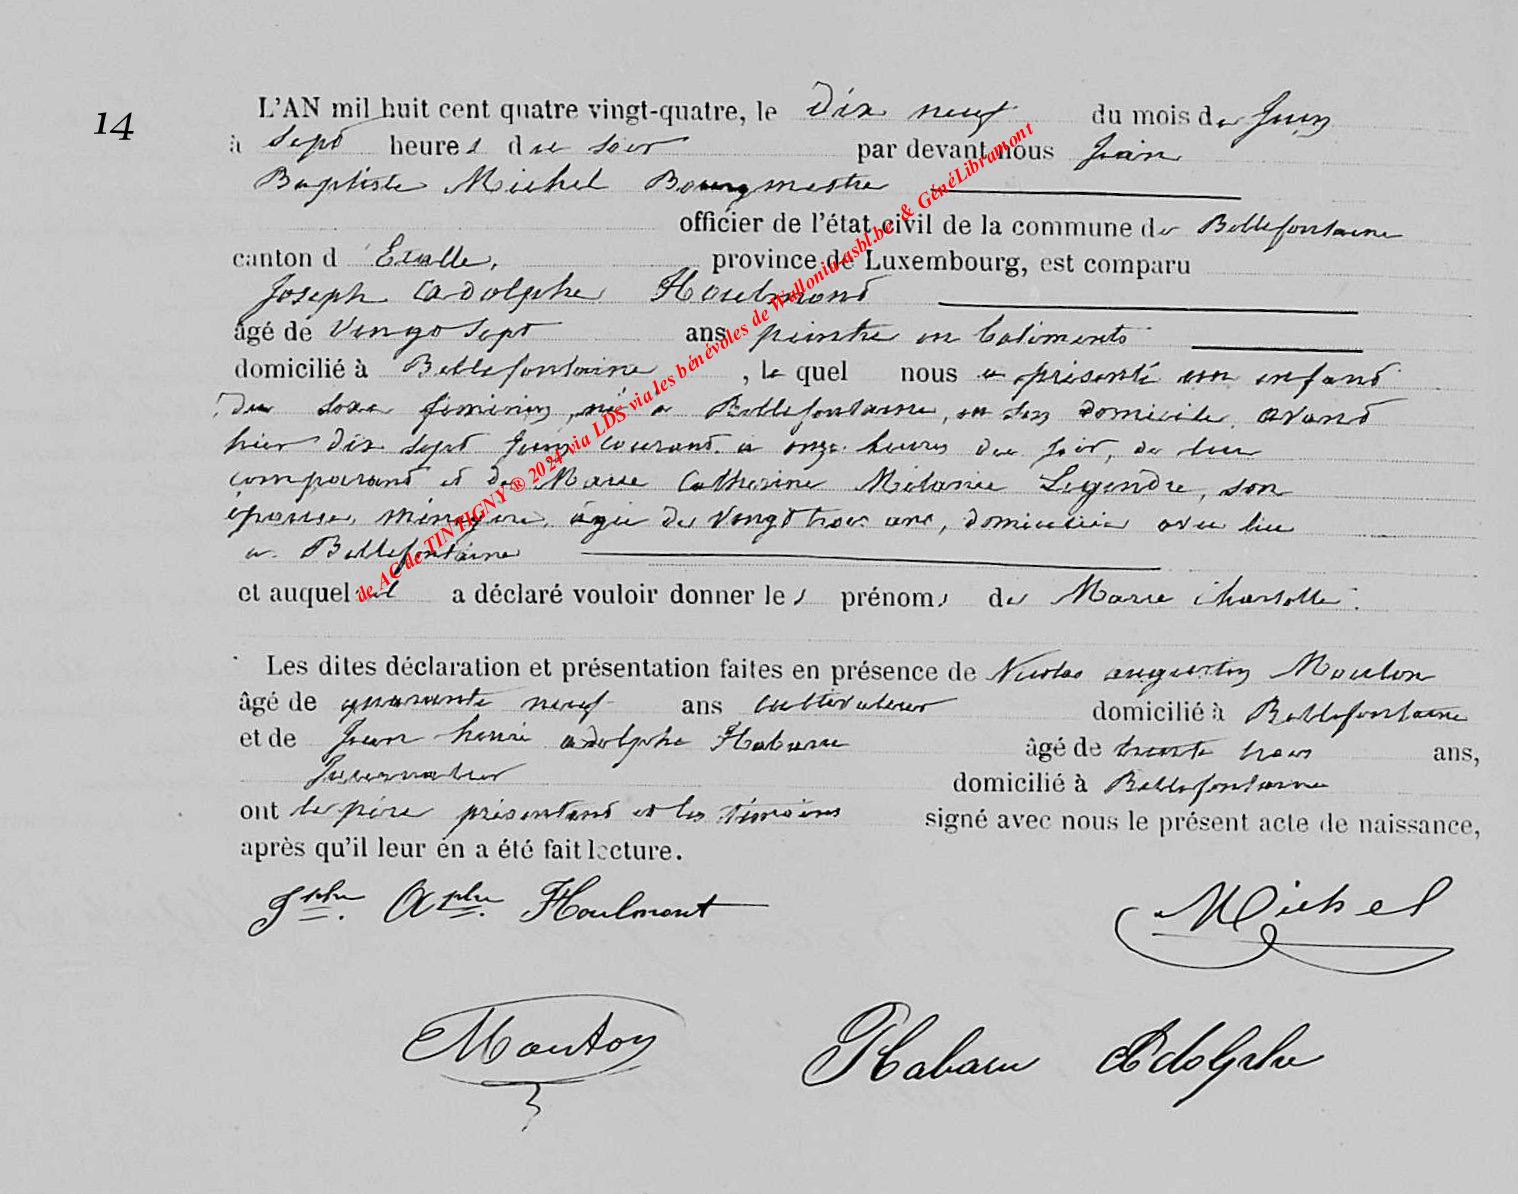 14
L'AN mil huit cent quatre vingt-quatre, le Dix neuf du mois de Juin
à sept heures du soir par devant nous Jean
Baptiste Michel Bourgmestre
officier de l'état civil de la commune de Bellefontaine
canton d'Etalle, province de Luxembourg, est comparu
Joseph Adolphe Houlmont
âgé de Vingt sept ans peintre en batiments
domicilié à Bellefontaine, le quel nous a présenté un enfant
du sexe féminin, né à Bellefontaine, en son domicile avant
hier dix sept Juin courant à onze heures du soir, de lui
comparant et de Marie Catherine Mélanie Legendre, son
épouse, ménagère, agée de Vingt trois ans, domiciliée avec lui
à Bellefontaine
et auquel il a déclaré vouloir donner les prénoms de Marie Charlotte.
Les dites déclaration et présentation faites en présence de Nicolas augustin Mouton
âgé de quarante neuf ans cultivateur domicilié à Bellefontaine
et de Jean henri adolphe Habaru âgé de trente trois ans,
Journalier domicilié à Bellefontaine
ont le père présentant et les témoins signé avec nous le présent acte de naissance,
après qu'il leur en a été fait lecture.
Jphe. Aphe. Houlmont Michel
Mouton Habaru Adolphe
de AC de TINTIGNY ® 2024 via LDS via les bénévoles de Wallonia-asbl.be & GénéLibramont